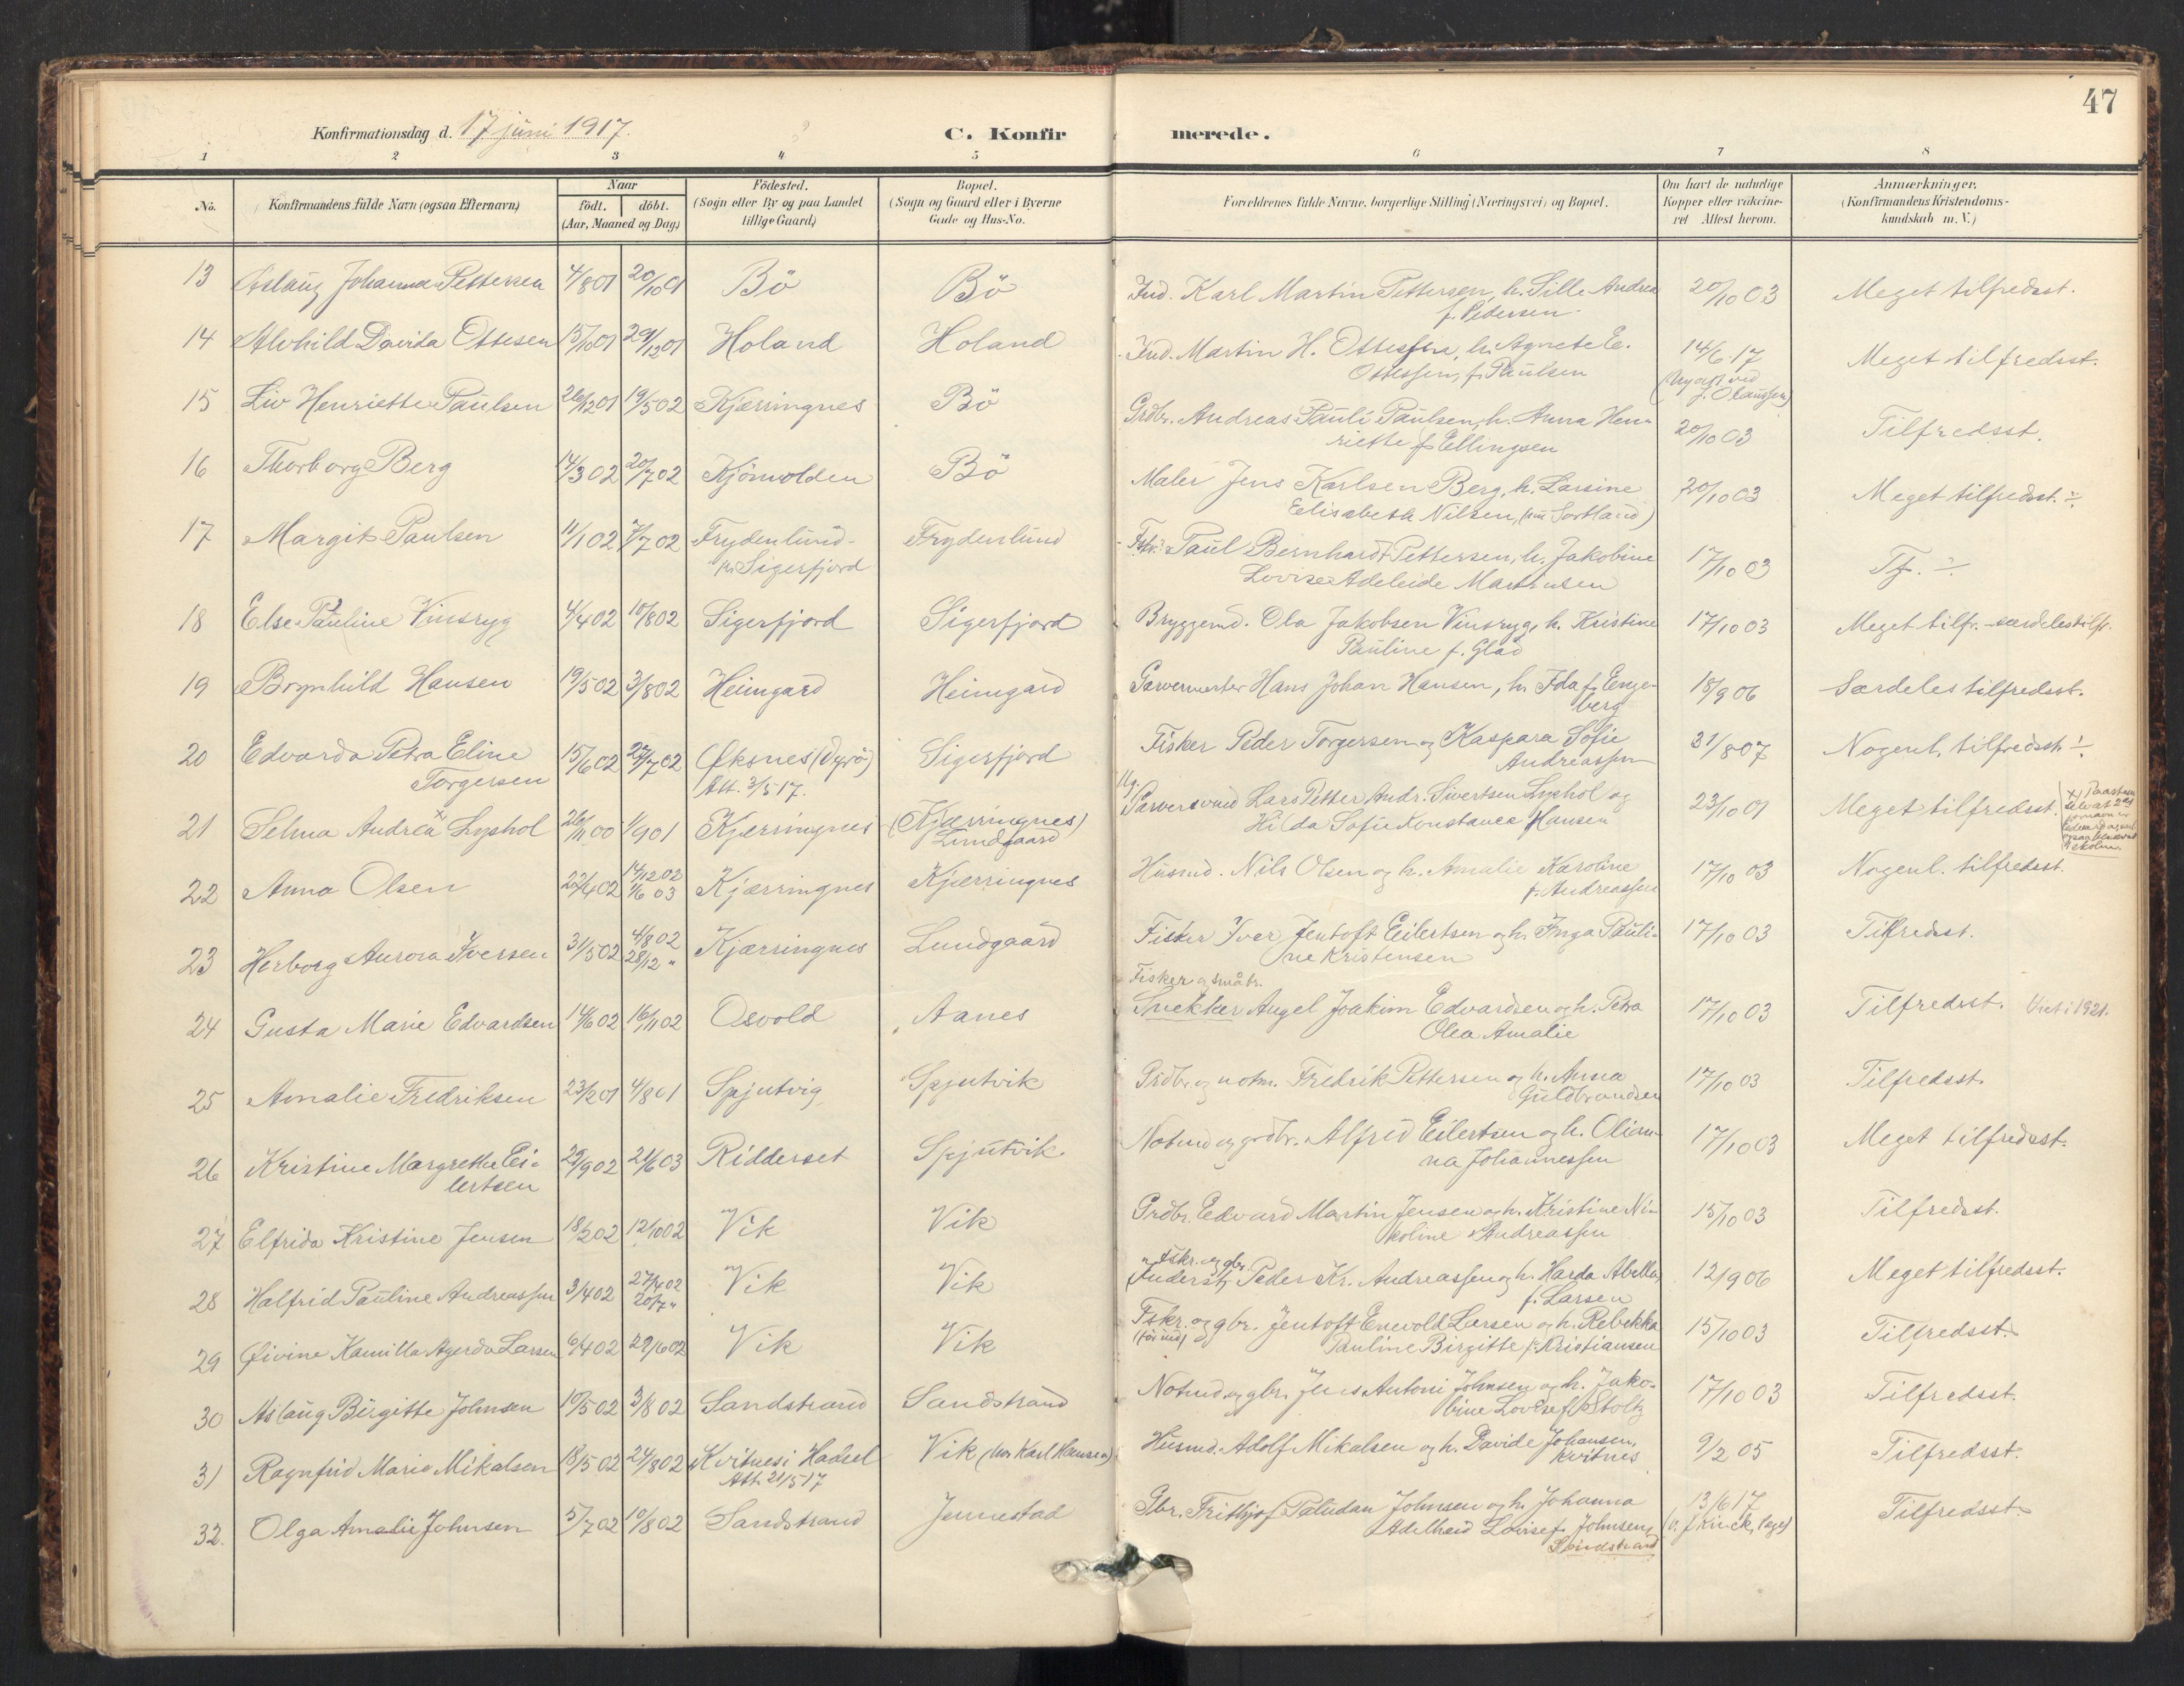 47
Konfirmationsdag d. 17 juni 1917.
C. Konfirmerede.
1 2 3 4 5 6 7 8
No.
Konfirmandens fulde Navn (ogsaa Efternavn)
Naar
födt. döbt.
(Aar, Maaned og Dag)
Födested.
(Sogn eller By og paa Landet
tillige Gaard)
Bopæl.
(Sogn og Gaard eller i Byerne
Gade og Hus-No.
Forældrenes fulde Navne, borgerlige Stilling (Næringsvei) og Bopæl.
Om havt de naturlige
Kopper eller vakcine-
ret Attest herom.
Anmærkninger.
(Konfirmandens Kristendoms-
kundskab m. V.)
13 Aslaug Johanna Pettersen 4/8 01 20/10 01 Bö Bö Ind. Karl Martin Pettersen, h. Sille Andrea 20/10 03 Meget tilfredsst.
f. Pedersen
14 Alvhild Davida Ottesen 15/10 01 29/12 01 Holand Holand Ind. Martin H. Ottessen, h. Agnete E. 14/6 17 Meget tilfredsst.
Ottessen, f. Paulsen
J. Olaussen)
15 Liv Henriette Paulsen 26/12 01 19/5 02 Kjærringnes Bö Grdbr. Andreas Pauli Paulsen, h. Anna Hen- 20/10 03 Tilfredsst.
riette f. Ellingsen
16 Thorborg Berg 14/3 02 20/7 02 Kjönvolden Bö Maler Jens Karlsen Berg, h. Larsine 20/10 03 Meget tilfredsst. ÷
Elisabeth Nilsen, (nu Sortland)
17 Margit Paulsen 11/1 02 7/7 02 Frydenlund- Frydenlund Paul Bernhardt Pettersen, h. Jakobine 17/10 03 Tf. ÷
Sigerfjord
Lovise Adeleide Marthinsen
18 Else Pauline Vinsryg 4/4 02 10/8 02 Sigerfjord Sigerfjord Bryggemd. Ola Jakobsen Vinsryg, h. Kristine 17/10 03 Meget tilfr. - særdeles tilfr.
Pauline f. Glad
19 Brynhild Hansen 19/5 02 3/8 02 Heimgard Heimgard Garvermester Hans Johan Hansen, h. Ida f. Enge- 18/9 06 Særdeles tilfredsst.
berg
20 Edvarda Petra Eline 15/6 02 27/7 02 Øksnes (Dyrö) Sigerfjord Fisker Peder Torgersen og Kaspara Sofie 31/8 07 Nogenl. tilfredsst. ÷
Torgersen Att. 3/5 17. Andreassen
21 Selma Andrea x Lyshol 26/11 00 1/9 01 Kjærringnes (Kjærringnes) Garversvend Lars Petter Andr. Sivertsen Lyshol og 23/10 01 Meget tilfredsst.
Lundgaard
Hilda Sofie Konstance Hansen
22 Anna Olsen 22/4 02 14/12 02 Kjærringnes Kjærringnes Husmd. Nils Olsen og h. Amalie Karoline 17/10 03 Nogenl. tilfredsst.
1/6 03 f. Andreassen
23 Herborg Aurora Iversen 31/5 02 4/8 02 Kjærringnes Lundgaard Fisker Iver Jentoft Eilertsen og h. Inga Pauli- 17/10 03 Tilfredsst.
28/12 " ne Kristensen
Fisker og småbr.
24 Gusta Marie Edvardsen 14/6 02 16/11 02 Osvold Aanes Snekker Angel Joakim Edvardsen og h. Petra 17/10 03 Tilfredsst. i 1921.
Olea Amalie
25 Amalie Fredriksen 23/2 01 4/8 01 Spjutvig Spjutvik Grdbr. og notm. Fredrik Pettersen og h. Anna 17/10 03 Tilfredsst.
Guldbrandsen
26 Kristine Margrethe Ei- 29/9 02 21/6 03 Ridderset Spjutvik Notmd. og grdbr. Alfred Eilertsen og h. Olian- 17/10 03 Meget tilfredsst.
lertsen na Johannessen
27 Elfrida Kristine Jensen 18/2 02 12/10 02 Vik Vik Grdbr. Edvard Martin Jensen og h. Kristine Ni- 15/10 03 Tilfredsst.
koline Andreassen
Fskr. og gbr.
28 Halfrid Pauline Andreassen 3/4 02 27/4 02 Vik Vik Inderst, Peder Kr. Andreassen og h. Harda Abella, 12/9 06 Meget tilfredsst.
20/7 " f. Larsen
29 Øivine Kamilla Agerda Larsen 6/4 02 29/6 02 Vik Vik Fskr. og gbr. Jentoft Enevold Larsen og h. Rebekka 15/10 03 Tilfredsst.
Pauline Birgitte f. Kristiansen
30 Aslaug Birgitte Johnsen 10/5 02 3/8 02 Sandstrand Sandstrand Notmd. og gbr. Jens Antoni Johnsen og h. Jako- 17/10 03 Tilfredsst.
bine Lovise f. Stoltz
31 Ragnfrid Marie Mikalsen 18/5 02 24/8 02 Kvitnes i Hadsel Vik (hos Karl Hansen) Husmd. Adolf Mikalsen og h. Davide Johansen, 9/2 05 Tilfredsst.
Att. 21/5 17 Kvitnes
32. Olga Amalie Johnsen 5/7 02 10/8 02 Sandstrand Jennestad Gbr. Frithjof Paludan Johnsen og h. Johanna 13/6 17 Tilfredsst.
Adelheid Lovise f. Johnsen, (v. J. Kinck, læge)
Sandstrand